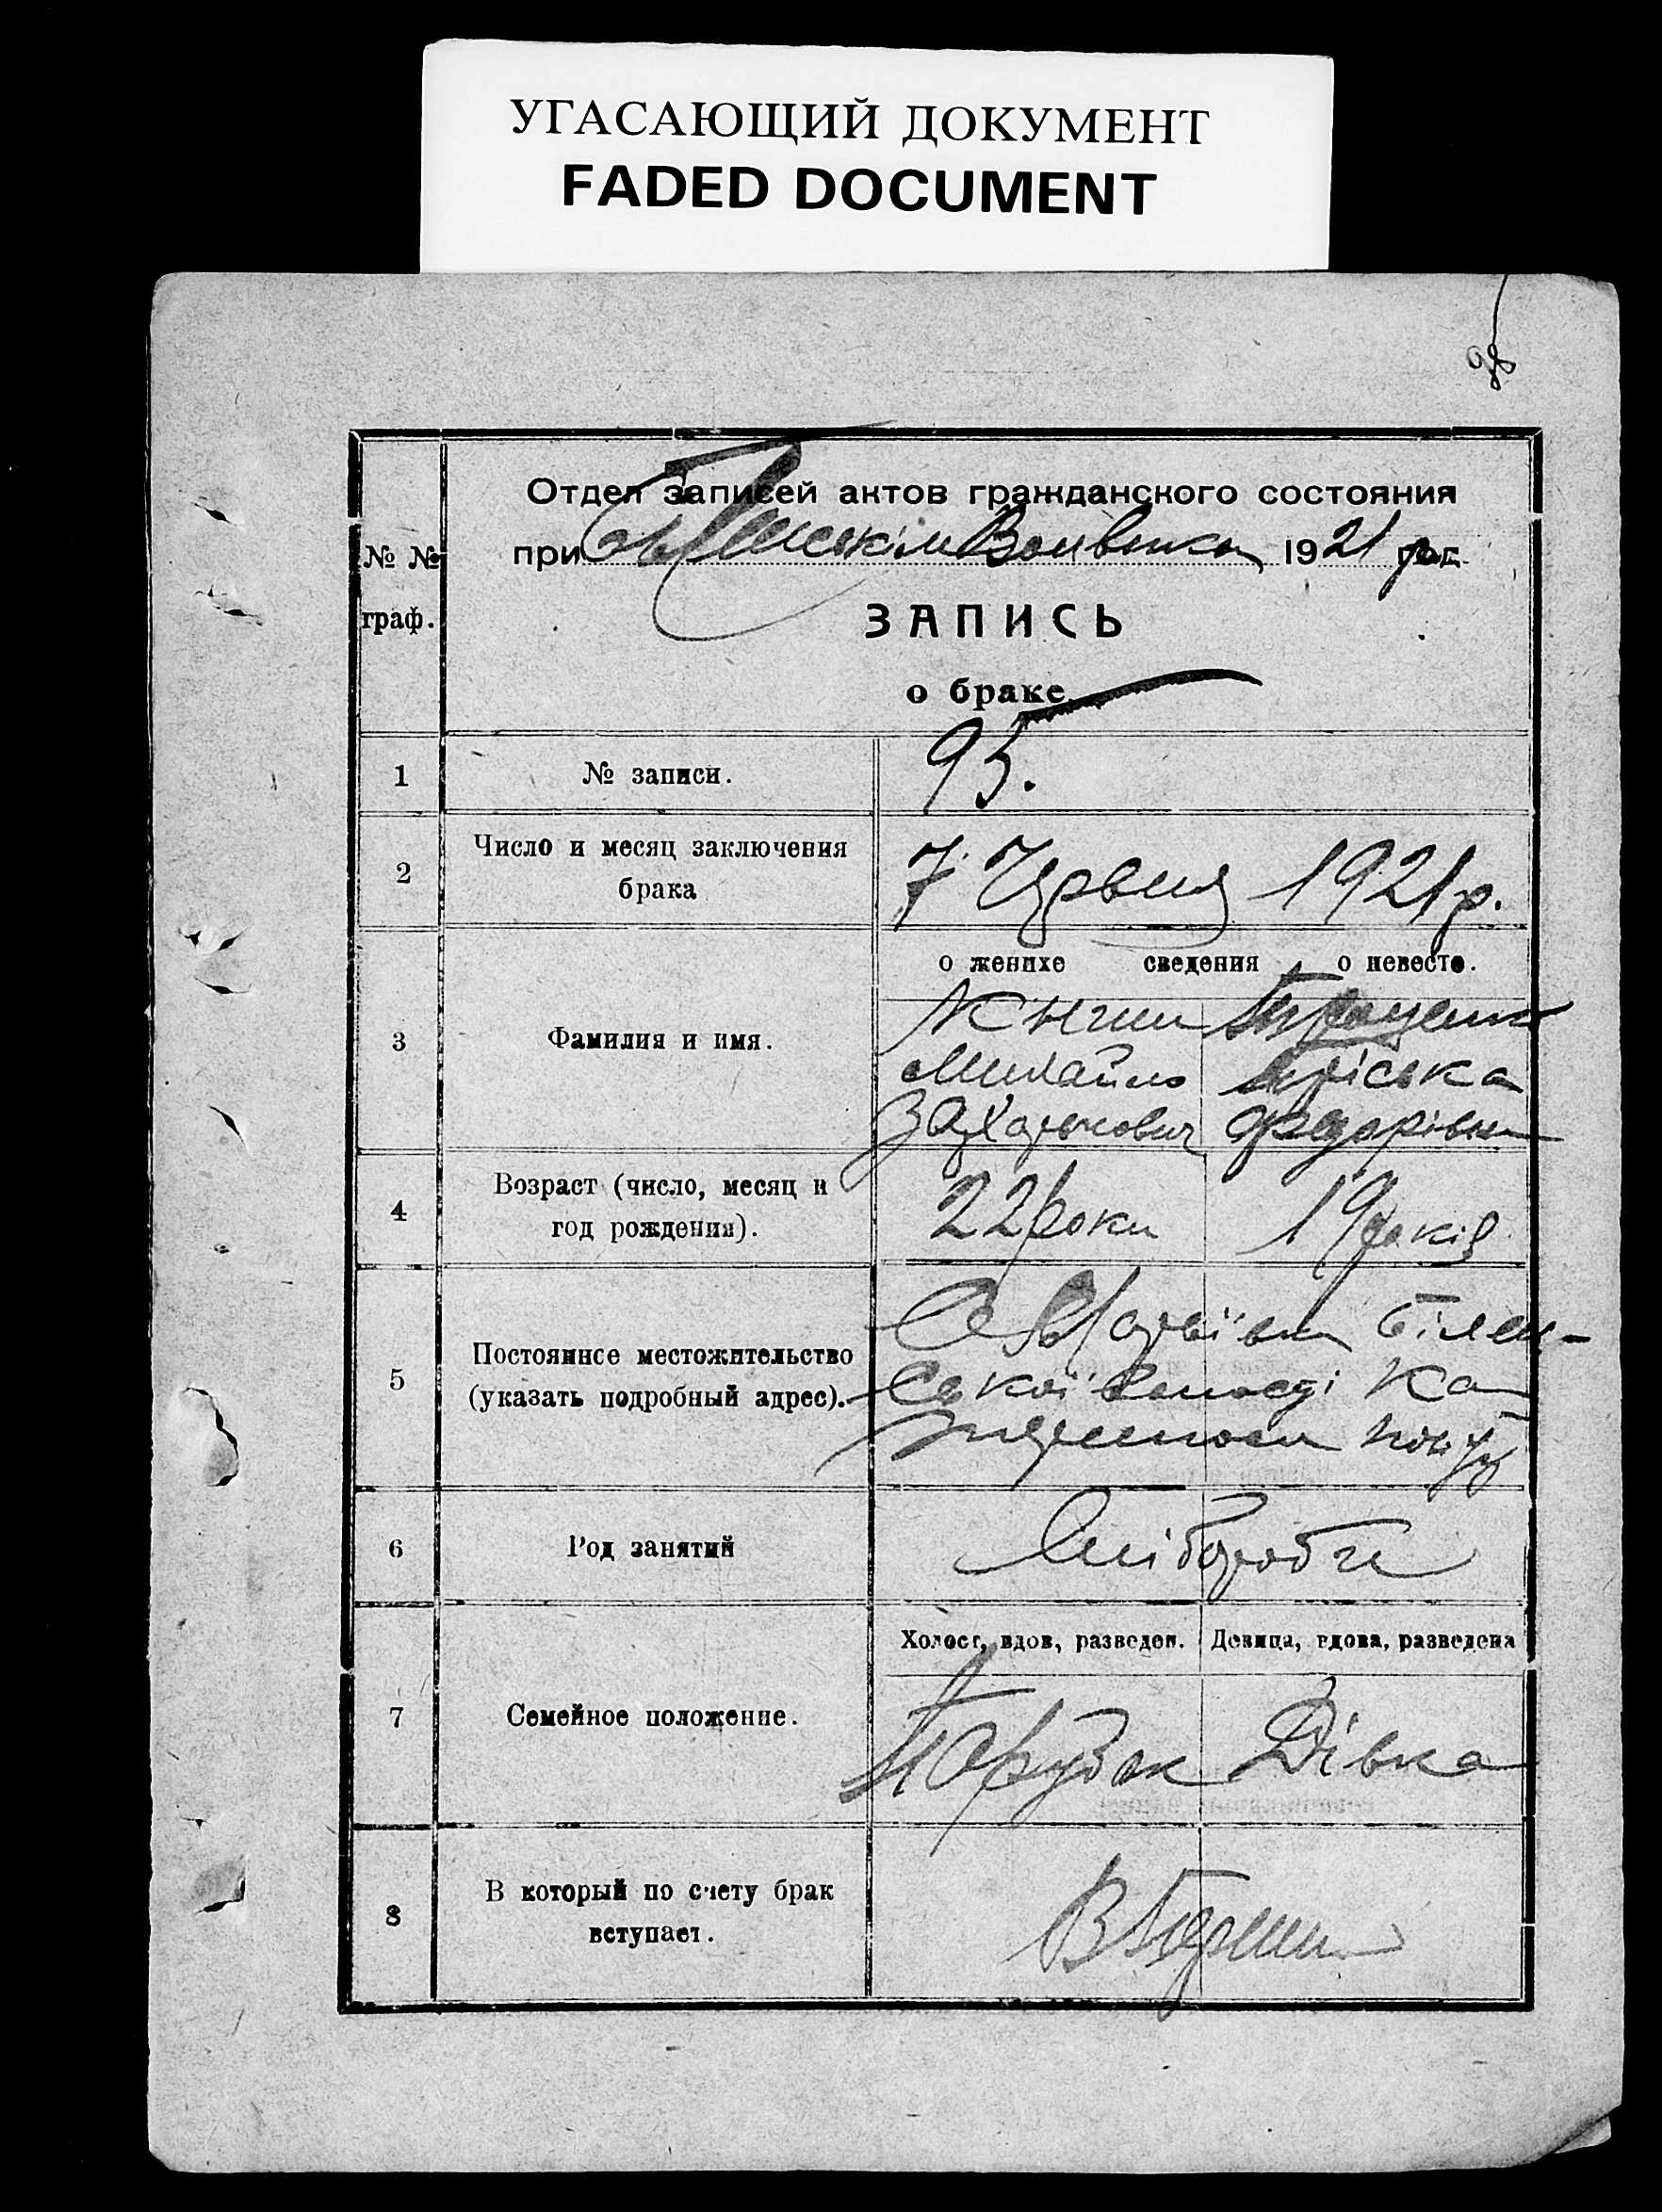 УГАСАЮЩИЙ ДОКУМЕНТ
FADED DOCUMENT
98
№ №
граф.
Отдел записей актов гражданского состояния
при 1921 год
ЗАПИСЬ
о браке
1 № записи. 95.
2 Число и месяц заключения
брака
7 Червня 1921 р.
о женихе сведения о невесте.
3 Фамилия и имя.
Михайло Пріська
Захарькович Федорівна
4 Возраст (число, месяц и
год рождения).
22 роки 19 років
5 Постоянное местожительство
(указать подробный адрес).
Білен-
ської волості
повіту
6 Род занятий
Хлібороби
Холост, вдов, разведен. Девица, вдова, разведена
7 Семейное положение.
Парубок Дівка
8 В который по счету брак
вступает.
В Перший